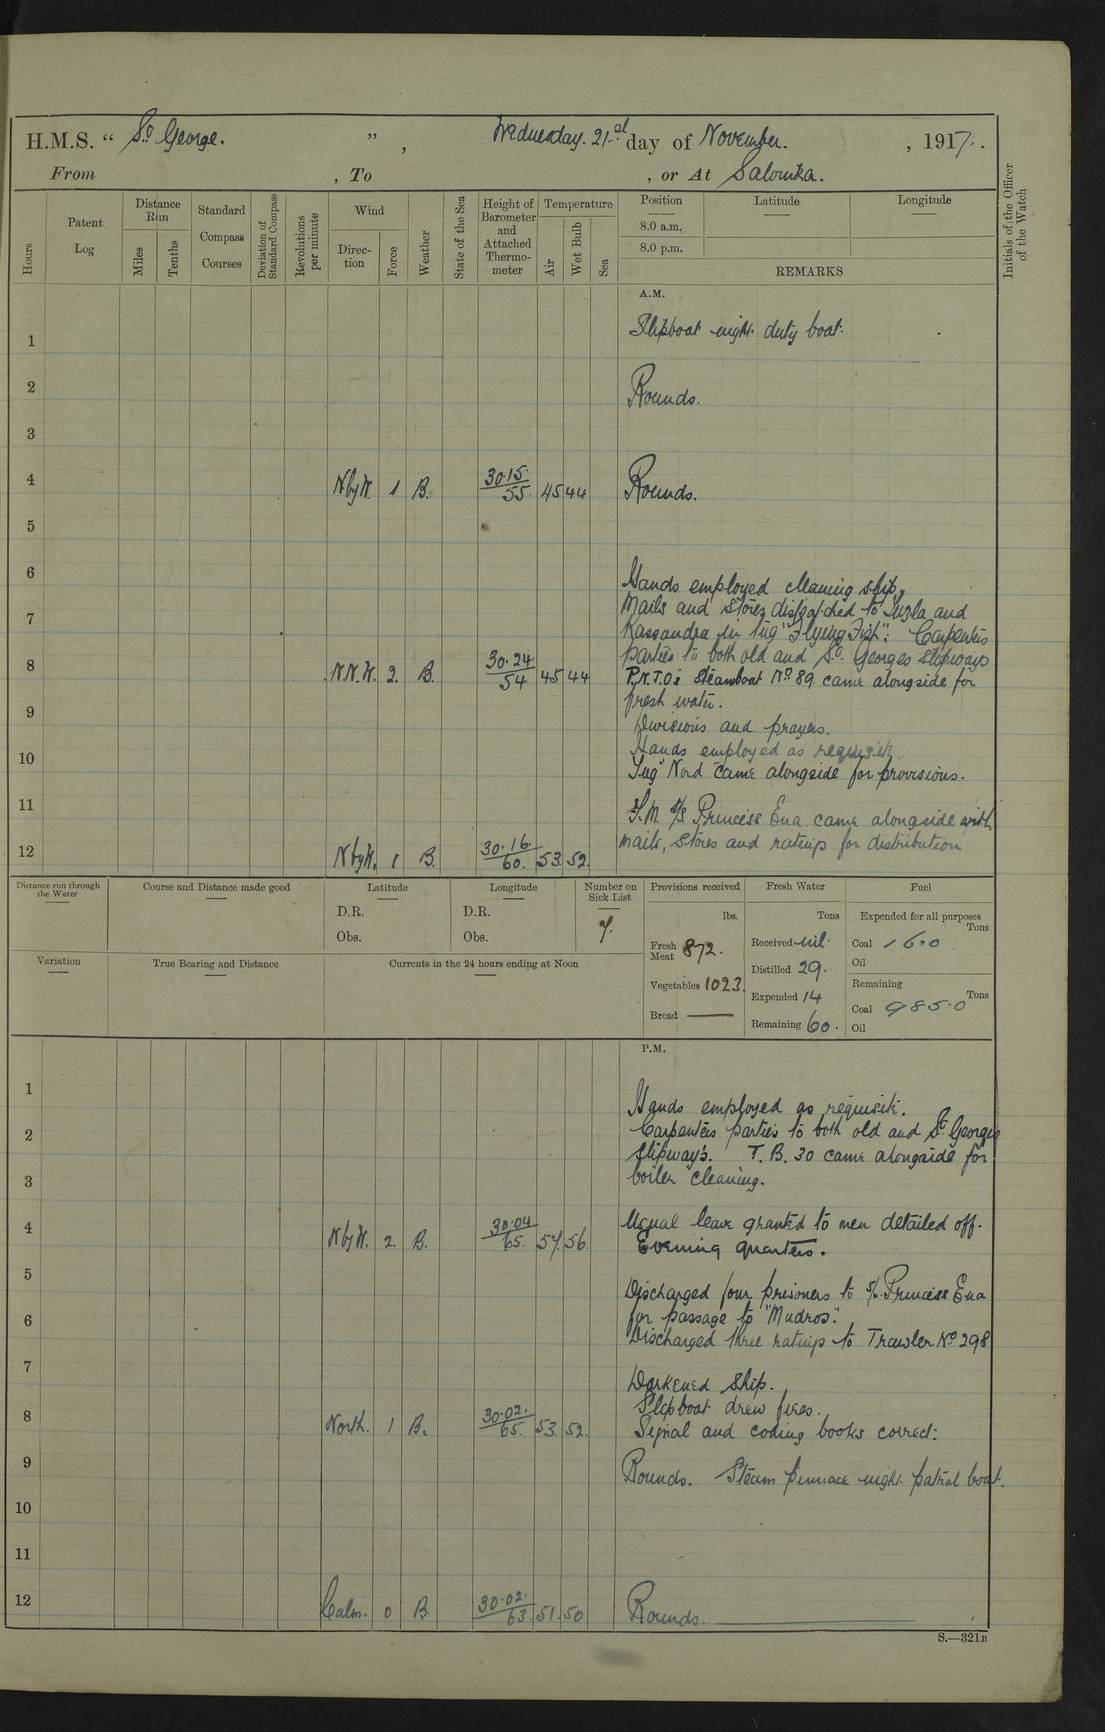 H.M.S. “ St George. ” , Wednesday. 21st day of November. , 1917.
From , To , or At Salonika.
Hours
Patent Log
Distance Run
Miles
Tenths
Standard Compass Courses
Deviation of Standard Compass
Revolutions per minute
Wind
Direction
Force
Weather
State of the Sea
Height of Barometer and Attached Thermometer
Temperature
Air
Wet Bulb
Sea
Position
8.0 a.m.
8.0 p.m.
Latitude
Longitude
REMARKS
Initials of the Officer of the Watch
A.M.
1 Slipboat night duty boat.
2 Rounds.
3
4 N by W. 1 B. 30.15. 55 45 44 Rounds.
5
6 Hands employed cleaning ship,
Mails and stores dispatched to Tuzla and
7 Kassandra in tug "Flying Fish": Carpenters
parties to both old and St. Georges slipways
8 N.N.W. 2. B. 30.24 54 45 44 P.N.T.O's steamboat No 89 came alongside for
fresh water.
9 Divisions and prayers.
Hands employed as requisite.
10 Tug "Nord" came alongside for provisions.
11 F.M. S/S Princess Ena came alongside with
12 N by W. 1 B. 30.16. 60. 53. 52. mails, stores and ratings for distribution
Distance run through the Water
Course and Distance made good
Latitude
D.R.
Obs.
Longitude
D.R.
Obs.
Number on Sick List
7.
Provisions received
lbs.
Fresh Meat 872.
Vegetables 1023.
Bread —
Fresh Water
Tons
Received nil.
Distilled 29.
Expended 14
Remaining 60.
Fuel
Expended for all purposes
Tons
Coal 16.0
Oil
Remaining
Tons
Coal 985.0
Oil
Variation
True Bearing and Distance
Currents in the 24 hours ending at Noon
P.M.
1 Hands employed as requisite.
2 Carpenters parties to both old and St Georges
slipways. T.B. 30 came alongside for
3 boiler cleaning.
4 N by W. 2. B. 30.04 65. 57. 56. Usual leave granted to men detailed off.
Evening quarters.
5 Discharged four prisoners to S/S Princess Ena
6 for passage to "Mudros".
Discharged three ratings to Trawler No 298
7 Darkened Ship.
8 North. 1 B. 30.02. 65. 53. 52. Slipboat drew fires.
Signal and coding books correct:
9 Rounds. Steam pinnace night patrol boat.
10
11
12 Calm. 0 B. 30.02. 63. 51. 50 Rounds.
S.—321B